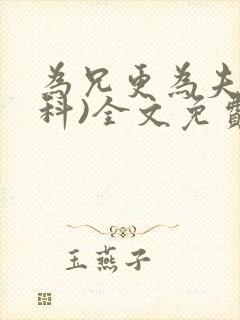 為兄更為夫
科)全文免費
玉燕子